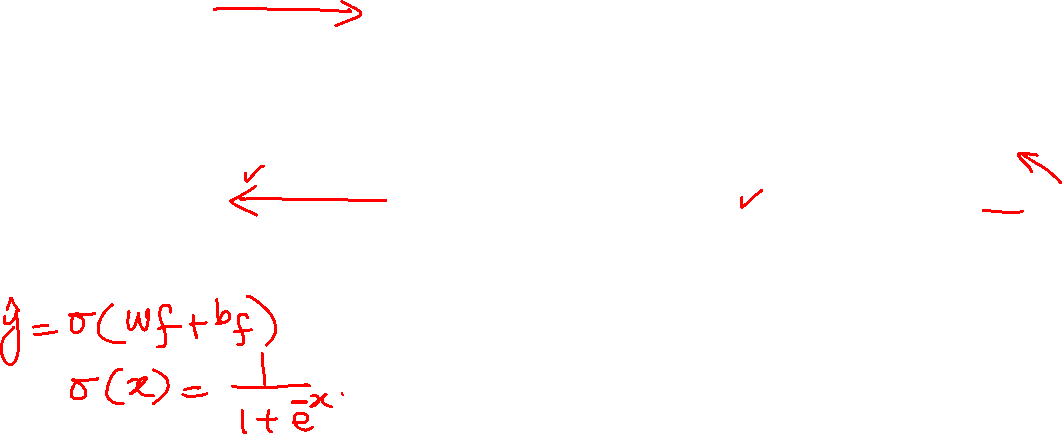 ŷ = σ(wf + bf)
σ(x) = 1 / (1 + e^-x)